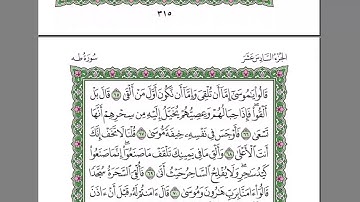 ٣١٥
الجزء السادس عشر سورة طه
قَالُوا۟ يَـٰمُوسَىٰٓ إِمَّآ أَن تُلْقِىَ وَإِمَّآ أَن نَّكُونَ أَوَّلَ مَنْ أَلْقَىٰ ٦٥ قَالَ بَلْ
أَلْقُوا۟ ۖ فَإِذَا حِبَالُهُمْ وَعِصِيُّهُمْ يُخَيَّلُ إِلَيْهِ مِن سِحْرِهِمْ أَنَّهَا
تَسْعَىٰ ٦٦ فَأَوْجَسَ فِى نَفْسِهِۦ خِيفَةً مُّوسَىٰ ٦٧ قُلْنَا لَا تَخَفْ إِنَّكَ
أَنتَ ٱلْأَعْلَىٰ ٦٨ وَأَلْقِ مَا فِى يَمِينِكَ تَلْقَفْ مَا صَنَعُوٓا۟ ۖ إِنَّمَا صَنَعُوا۟
كَيْدُ سَـٰحِرٍ ۖ وَلَا يُفْلِحُ ٱلسَّاحِرُ حَيْثُ أَتَىٰ ٦٩ فَأُلْقِىَ ٱلسَّحَرَةُ سُجَّدًا
قَالُوٓا۟ ءَامَنَّا بِرَبِّ هَـٰرُونَ وَمُوسَىٰ ٧٠ قَالَ ءَامَنتُمْ لَهُۥ قَبْلَ أَنْ ءَاذَنَ